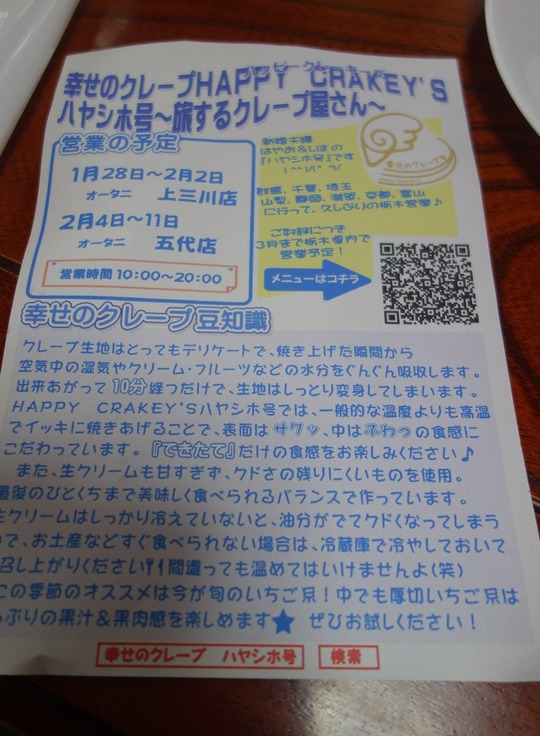 幸せのクレープHAPPY CRAKEY'S
ハヤシホ号～旅するクレープ屋さん～
営業の予定
1月28日～2月2日
オータニ 上三川店
2月4日～11日
オータニ 五代店
営業時間 10:00～20:00
新婚夫婦
はやお&しほの
『ハヤシホ号』です
群馬、千葉、埼玉
山梨、静岡、滋賀、京都、富山
に行って、久しぶりの栃木営業♪
ご好評につき
3月まで栃木県内で
営業予定!
メニューはコチラ
幸せのクレープ
幸せのクレープ豆知識
クレープ生地はとってもデリケートで、焼き上げた瞬間から
空気中の湿気やクリーム・フルーツなどの水分をぐんぐん吸収します。
出来あがって10分経つだけで、生地はしっとり変身してしまいます。
HAPPY CRAKEY'Sハヤシホ号では、一般的な温度よりも高温
でイッキに焼きあげることで、表面はサクッ、中はふわっの食感に
こだわっています。『できたて』だけの食感をお楽しみください♪
また、生クリームも甘すぎず、クドさの残りにくいものを使用。
最後のひとくちまで美味しく食べられるバランスで作っています。
生クリームはしっかり冷えていないと、油分がでてクドくなってしまう
ので、お土産などすぐ食べられない場合は、冷蔵庫で冷やしておいて
召し上がりください間違っても温めてはいけませんよ(笑)
この季節のオススメは今が旬のいちご系!中でも厚切いちご系は
っぷりの果汁&果肉感を楽しめます★ ぜひお試しください!
幸せのクレープ ハヤシホ号 検索